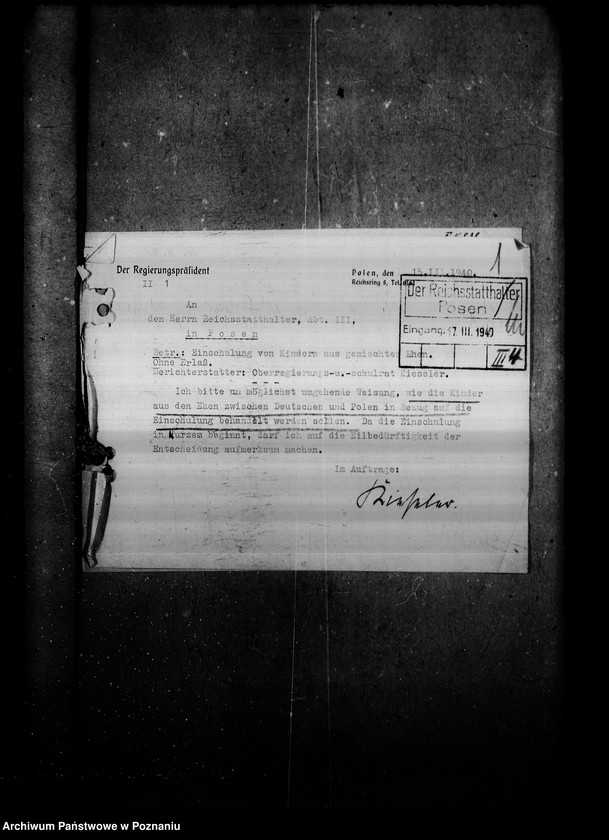 1
Der Regierungspräsident
II 1
Posen, den 15.III.1940.
Reichsring 5, Tel.
Der Reichsstatthalter
Posen
Eingang: 17. III. 1940
III 4
An
den Herrn Reichsstatthalter, Abt. III,
in Posen
Betr.: Einschulung von Kindern aus gemischten Ehen.
Ohne Erlaß.
Berichterstatter: Oberregierungs-u.-schulrat Kieseler.
Ich bitte um möglichst umgehende Weisung, wie die Kinder
aus den Ehen zwischen Deutschen und Polen in Bezug auf die
Einschulung behandelt werden sollen. Da die Einschulung
in kurzem beginnt, darf ich auf die Eilbedürftigkeit der
Entscheidung aufmerksam machen.
Im Auftrage:
Kieseler.
Archiwum Państwowe w Poznaniu